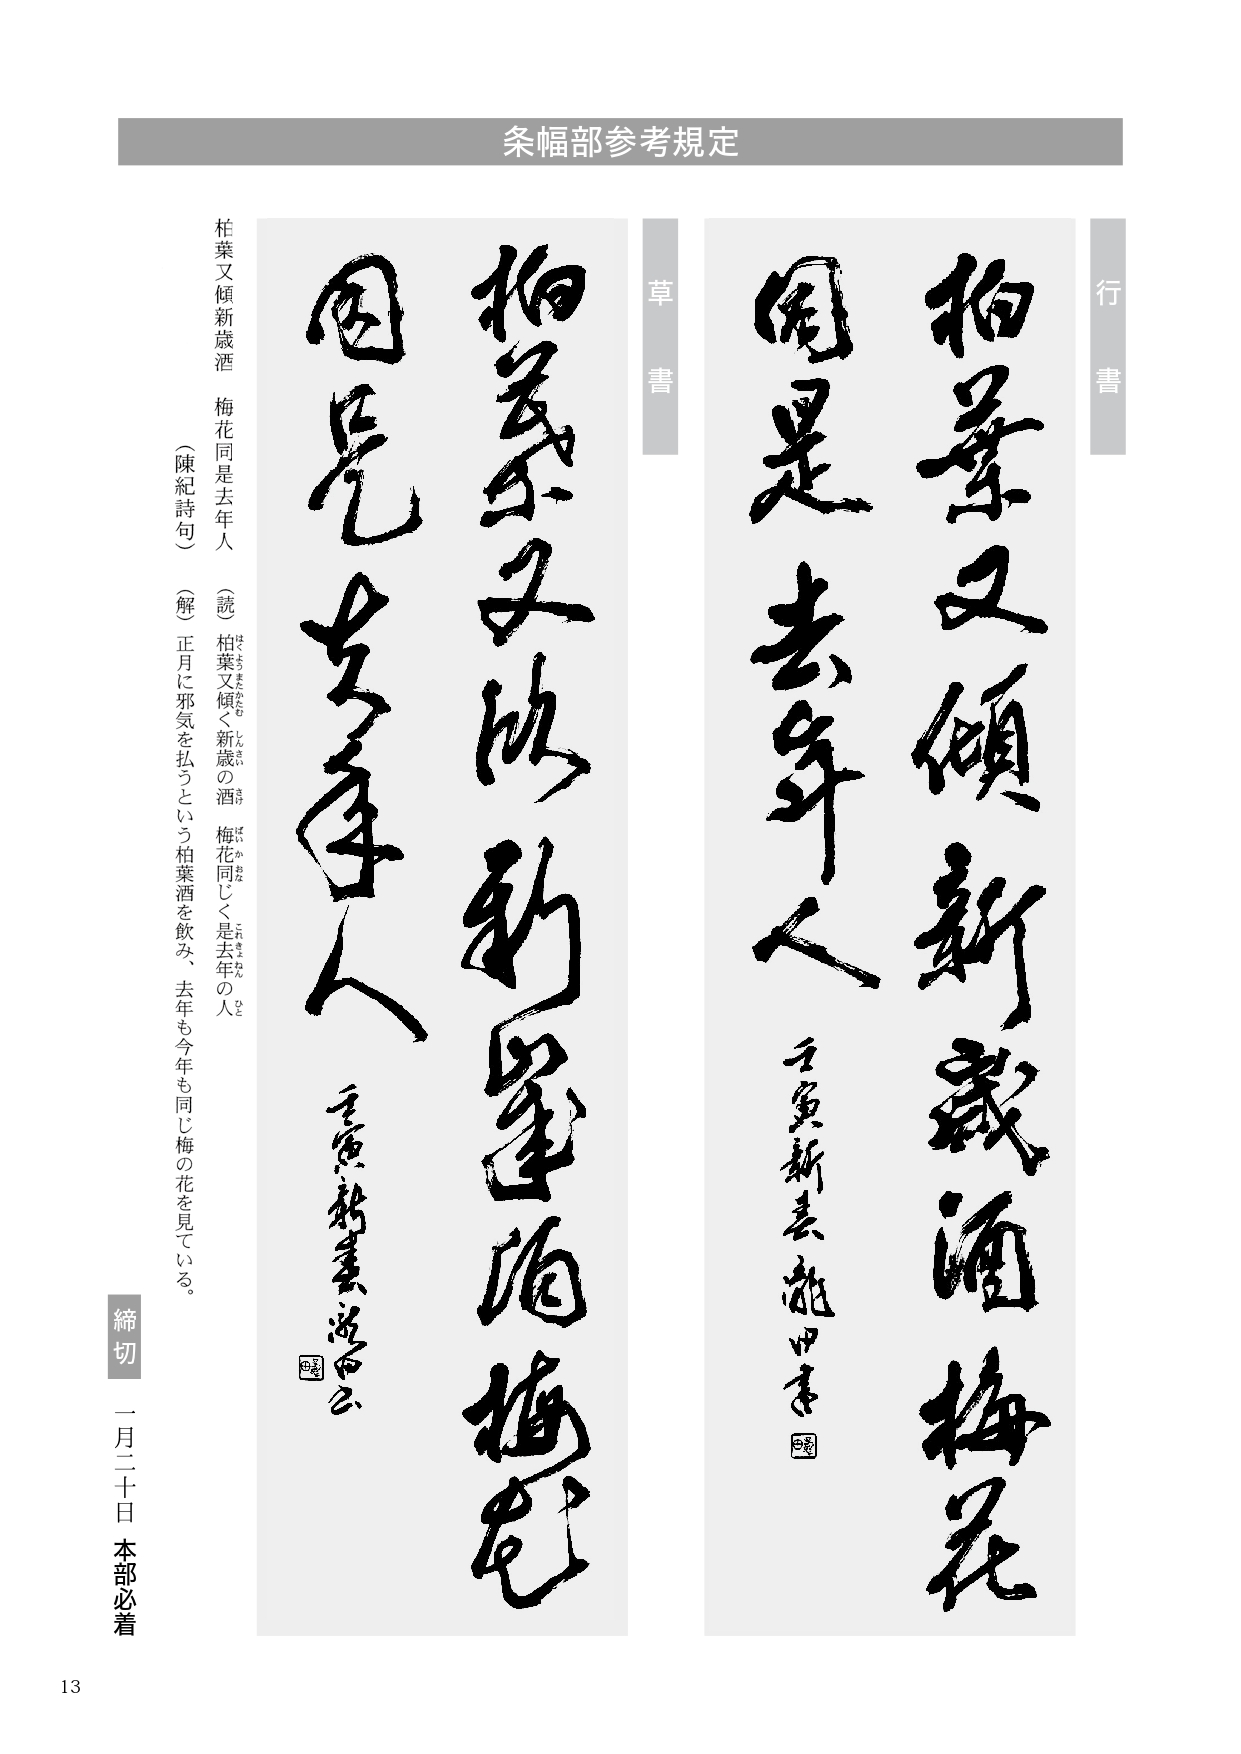 条幅部参考規定
行書
柏葉又傾新歳酒梅花
同是去年人
壬寅新春瀧田書
草書
柏葉又傾新歳酒梅花
同是去年人
壬寅新春瀧田書
柏葉又傾新歳酒　梅花同是去年人　（読）柏葉又傾く新歳の酒　梅花同じく是去年の人
はくようまたかたむ　しんさい　さけ　ばいか　おな　これきょねん　ひと
（陳紀詩句）　（解）正月に邪気を払うという柏葉酒を飲み、去年も今年も同じ梅の花を見ている。
締切　一月二十日　本部必着
13